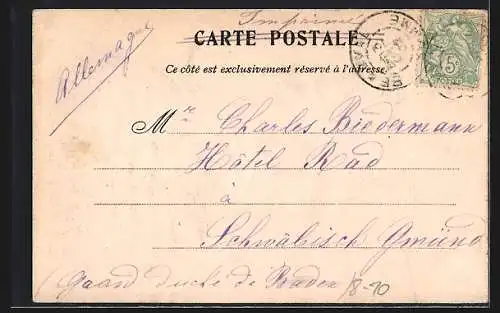 Imprimé
CARTE POSTALE
Ce côté est exclusivement réservé à l'adresse
Allemagne
M Charles Biedermann
Hôtel Rad
à
Schwäbisch Gmünd
(Grand duché de Baden
8-10
5